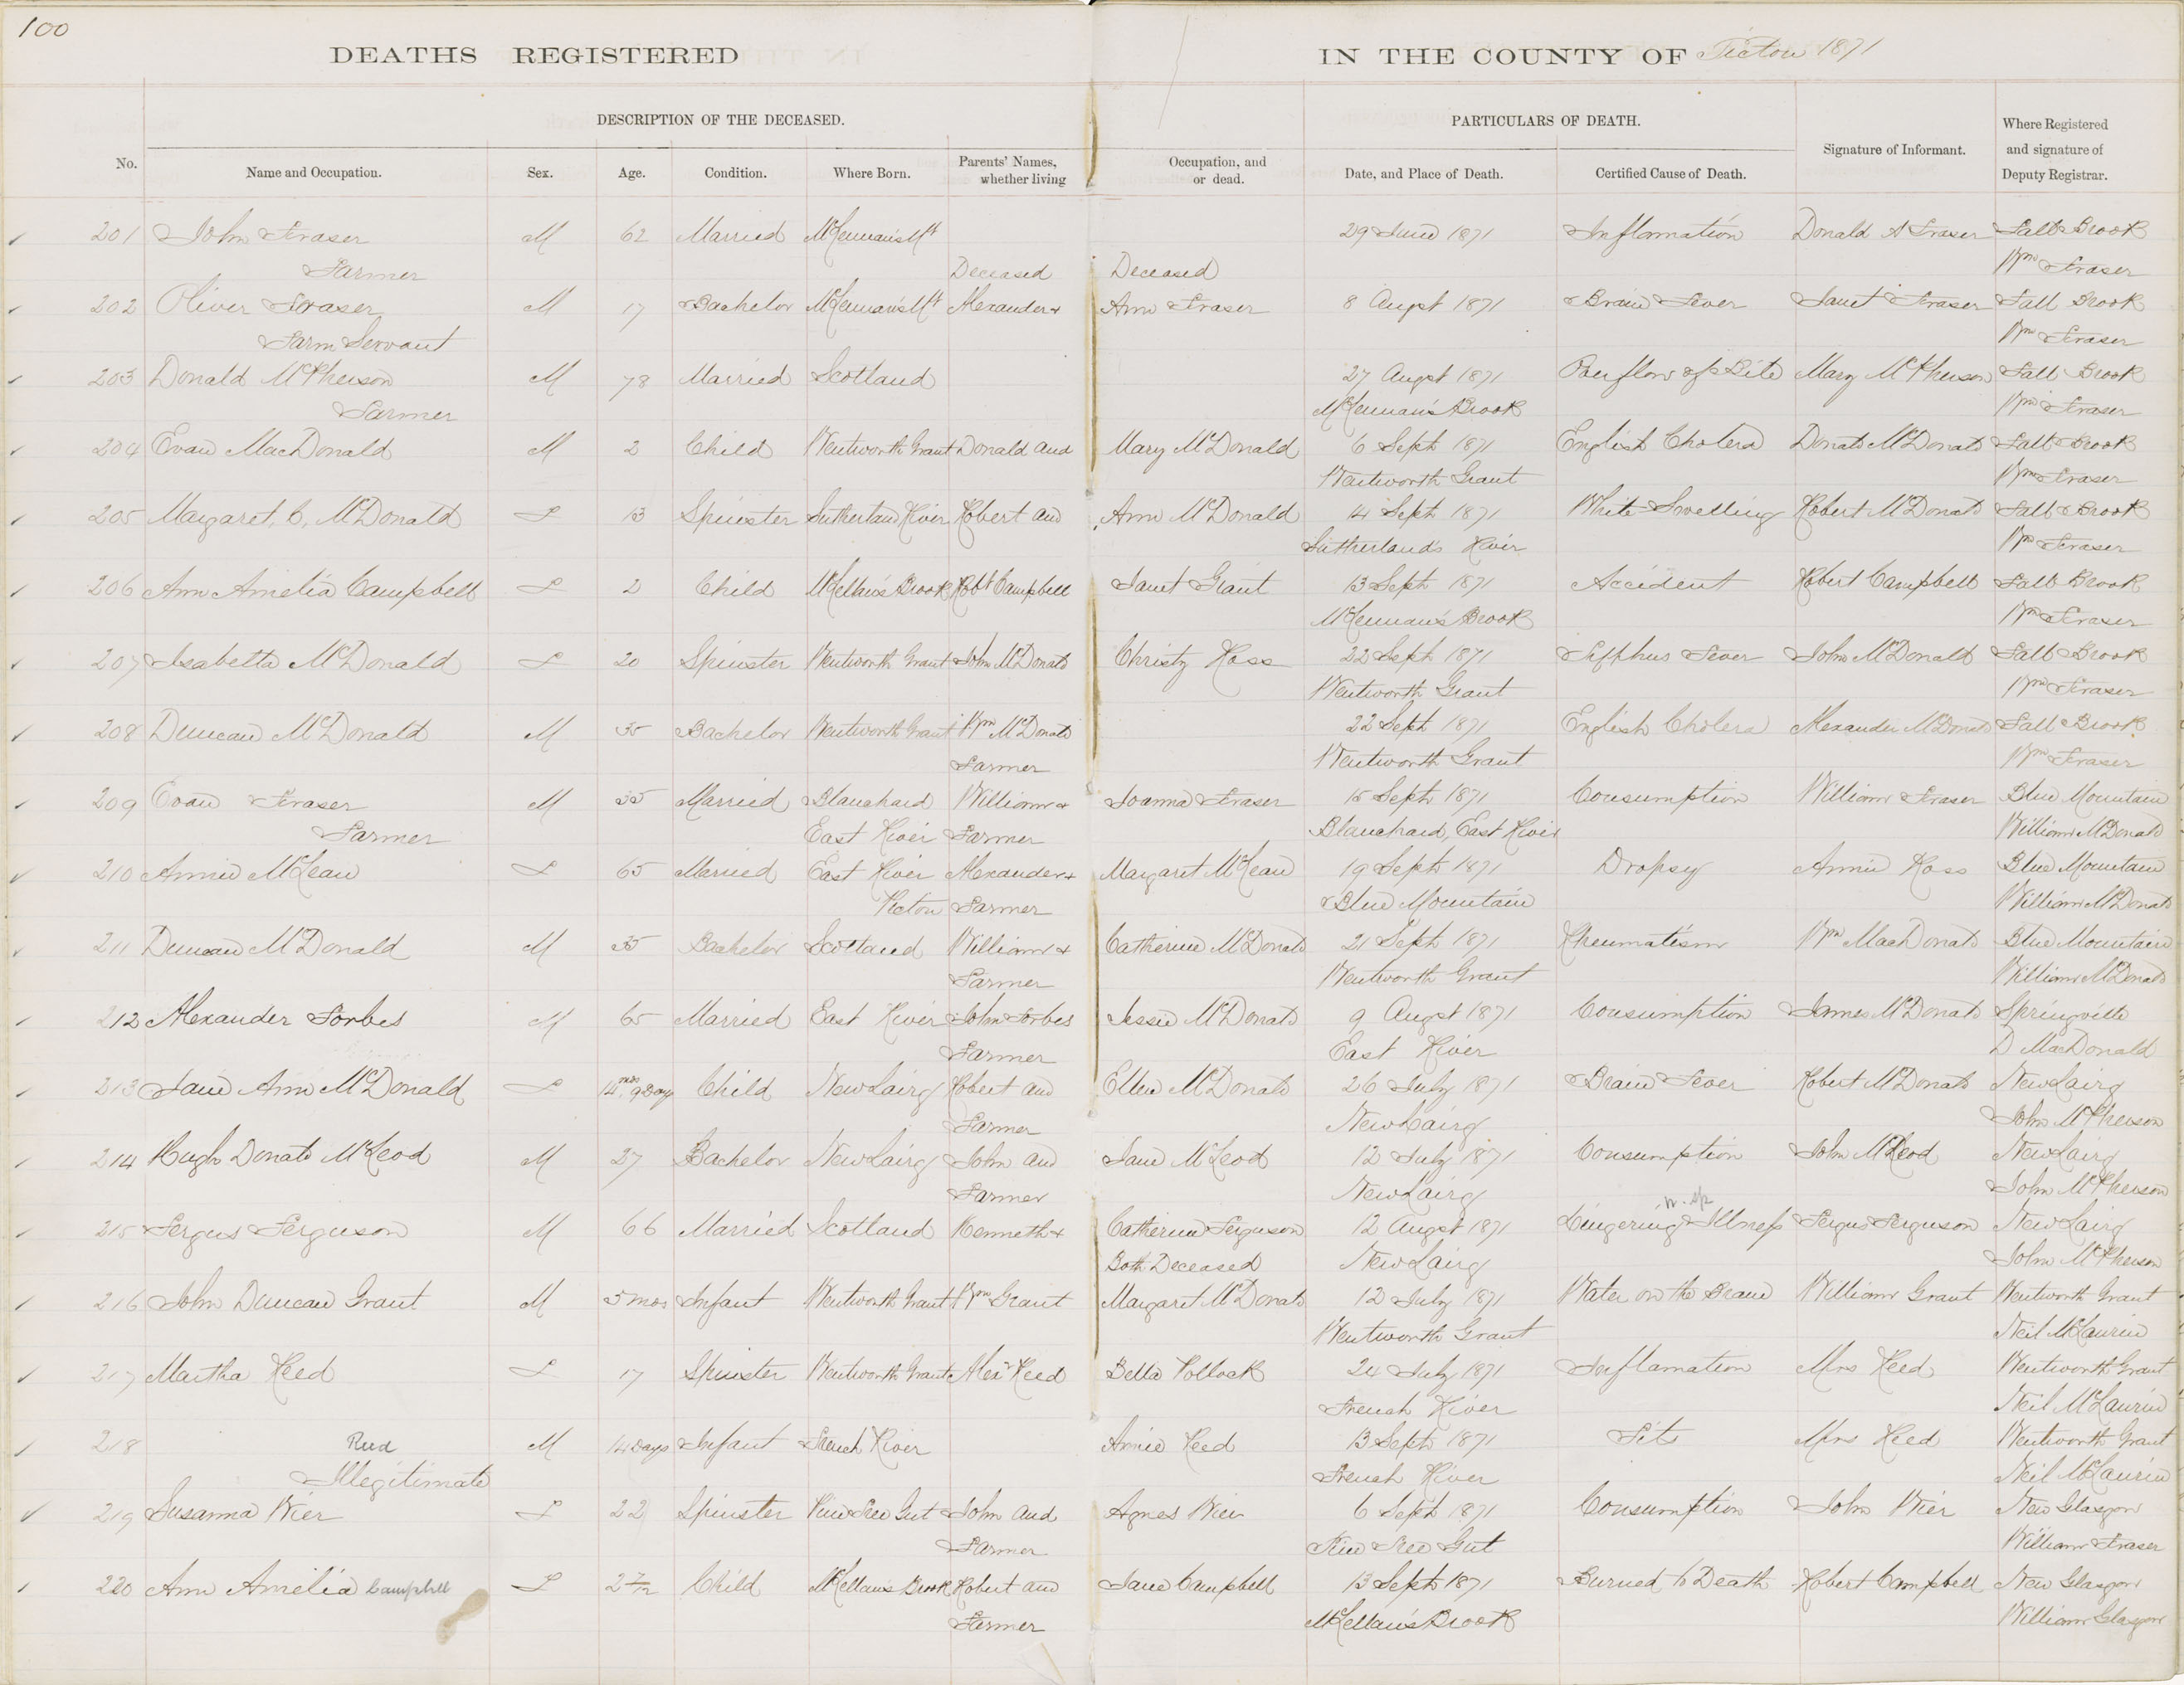 100
DEATHS REGISTERED IN THE COUNTY OF Pictou 1871
DESCRIPTION OF THE DECEASED. PARTICULARS OF DEATH.
No. Name and Occupation. Sex. Age. Condition. Where Born. Parents' Names, whether living Occupation, and or dead. Date, and Place of Death. Certified Cause of Death. Signature of Informant. Where Registered and signature of Deputy Registrar.
201 John Fraser M 62 Married McLennan's Mt 29 June 1871 Inflamation Donald A Fraser Fall Brook
Farmer Deceased Deceased Wm Fraser
202 Oliver Fraser M 17 Bachelor McLennan's Mt Alexander & Ann Fraser 8 Augst 1871 Brain Fever Janet Fraser Fall Brook
Farm Servant Wm Fraser
203 Donald McPherson M 78 Married Scotland 27 Augst 1871 Mary McPherson Fall Brook
Farmer McLennan's Brook Wm Fraser
204 Evan MacDonald M 2 Child Wentworth Grant Donald and Mary McDonald 6 Septr 1871 English Cholera Donald McDonald Fall Brook
Wentworth Grant Wm Fraser
205 Margaret, C, McDonald F 13 Spinster Sutherland River Robert and Ann McDonald 14 Septr 1871 White Swelling Robert McDonald Fall Brook
Sutherland's River Wm Fraser
206 Ann Amelia Campbell F 2 Child McLellan's Brook Robt Campbell Janet Grant 13 Septr 1871 Accident Robert Campbell Fall Brook
McLennan's Brook Wm Fraser
207 Isabella McDonald F 20 Spinster Wentworth Grant John McDonald Christy Ross 22 Septr 1871 Typhus Fever John McDonald Fall Brook
Wentworth Grant Wm Fraser
208 Duncan McDonald M 35 Bachelor Wentworth Grant Wm McDonald 22 Septr 1871 English Cholera Alexander McDonald Fall Brook
Farmer Wentworth Grant Wm Fraser
209 Evan Fraser M 35 Married Blanchard William & Joanna Fraser 15 Septr 1871 Consumption William Fraser Blue Mountain
Farmer East River Farmer Blanchard, East River William McDonald
210 Annie McLean F 65 Married East River Alexander & Margaret McLean 19 Septr 1871 Dropsy Annie Ross Blue Mountain
Pictou Farmer Blue Mountain William McDonald
211 Duncan McDonald M 35 Bachelor Scotland William & Catherine McDonald 21 Septr 1871 Rheumatism Wm MacDonald Blue Mountain
Farmer Wentworth Grant William McDonald
212 Alexander Forbes M 65 Married East River John Forbes Jessie McDonald 9 Augst 1871 Consumption James McDonald Springville
Farmer East River D MacDonald
213 Jane Ann McDonald F 14 mos. 9 Days Child New Lairg Robert and Ellen McDonald 26 July 1871 Brain Fever Robert McDonald New Lairg
Farmer New Lairg John McPherson
214 Hugh Donald McLeod M 27 Bachelor New Lairg John and Jane McLeod 12 July 1871 Consumption John McLeod New Lairg
Farmer New Lairg John McPherson
n. sp
215 Fergus Ferguson M 66 Married Scotland Kenneth & Catherine Ferguson 12 Augst 1871 Lingering Illness Fergus Ferguson New Lairg
Both Deceased New Lairg John McPherson
216 John Duncan Grant M 5 mos Infant Wentworth Grant Wm Grant Margaret McDonald 12 July 1871 Water on the Brain William Grant Wentworth Grant
Wentworth Grant Neil McLaurin
217 Martha Reed F 17 Spinster Wentworth Grant Alexr Reed Bella Pollock 24 July 1871 Inflamation Mrs Reed Wentworth Grant
French River Neil McLaurin
218 Reed M 14 Days Infant French River Annie Reed 13 Septr 1871 Fits Mrs Reed Wentworth Grant
Illegitimate French River Neil McLaurin
219 Susanna Wier F 22 Spinster Pine Tree Gut John and Agnes Wier 6 Septr 1871 Consumption John Wier New Glasgow
Farmer Pine Tree Gut William Fraser
220 Ann Amelia Campbell F 2 7/12 Child McLellan's Brook Robert and Jane Campbell 13 Septr 1871 Burned to Death Robert Campbell New Glasgow
Farmer McLellan's Brook William Glasgow